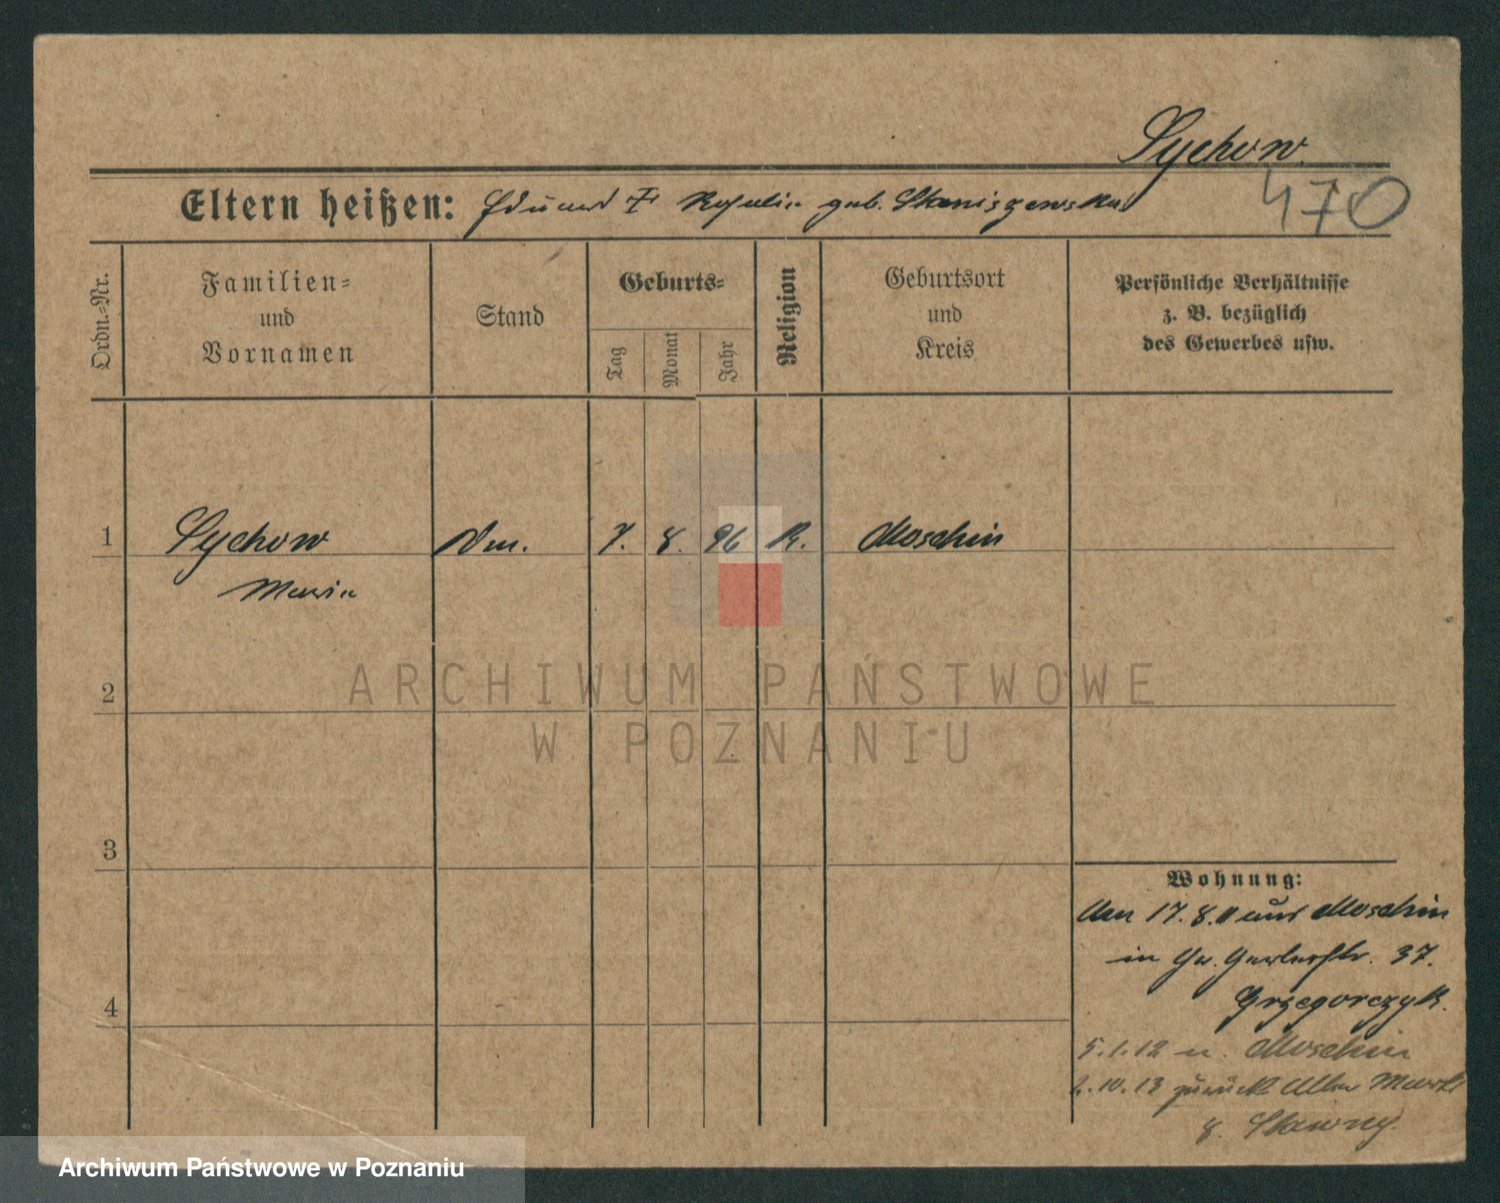 Sychow
470
Eltern heißen: Eduard † Rosalie geb. Staniszewska
Ordn.-Nr.
Familien- und Vornamen
Stand
Geburts-
Tag
Monat
Jahr
Religion
Geburtsort und Kreis
Persönliche Verhältnisse
z. B. bezüglich
des Gewerbes usw.
1 Sychow Dm. 7. 8. 96 K. Moschin
Maria
2
3
4
Wohnung:
17. 8. 11 aus Moschin
in Gr. Gerberstr. 37.
Grzegorczyk.
5.1.12 n. Moschin
2.10.13 zurück Alter Markt
8.
ARCHIWUM PAŃSTWOWE
W POZNANIU
Archiwum Państwowe w Poznaniu